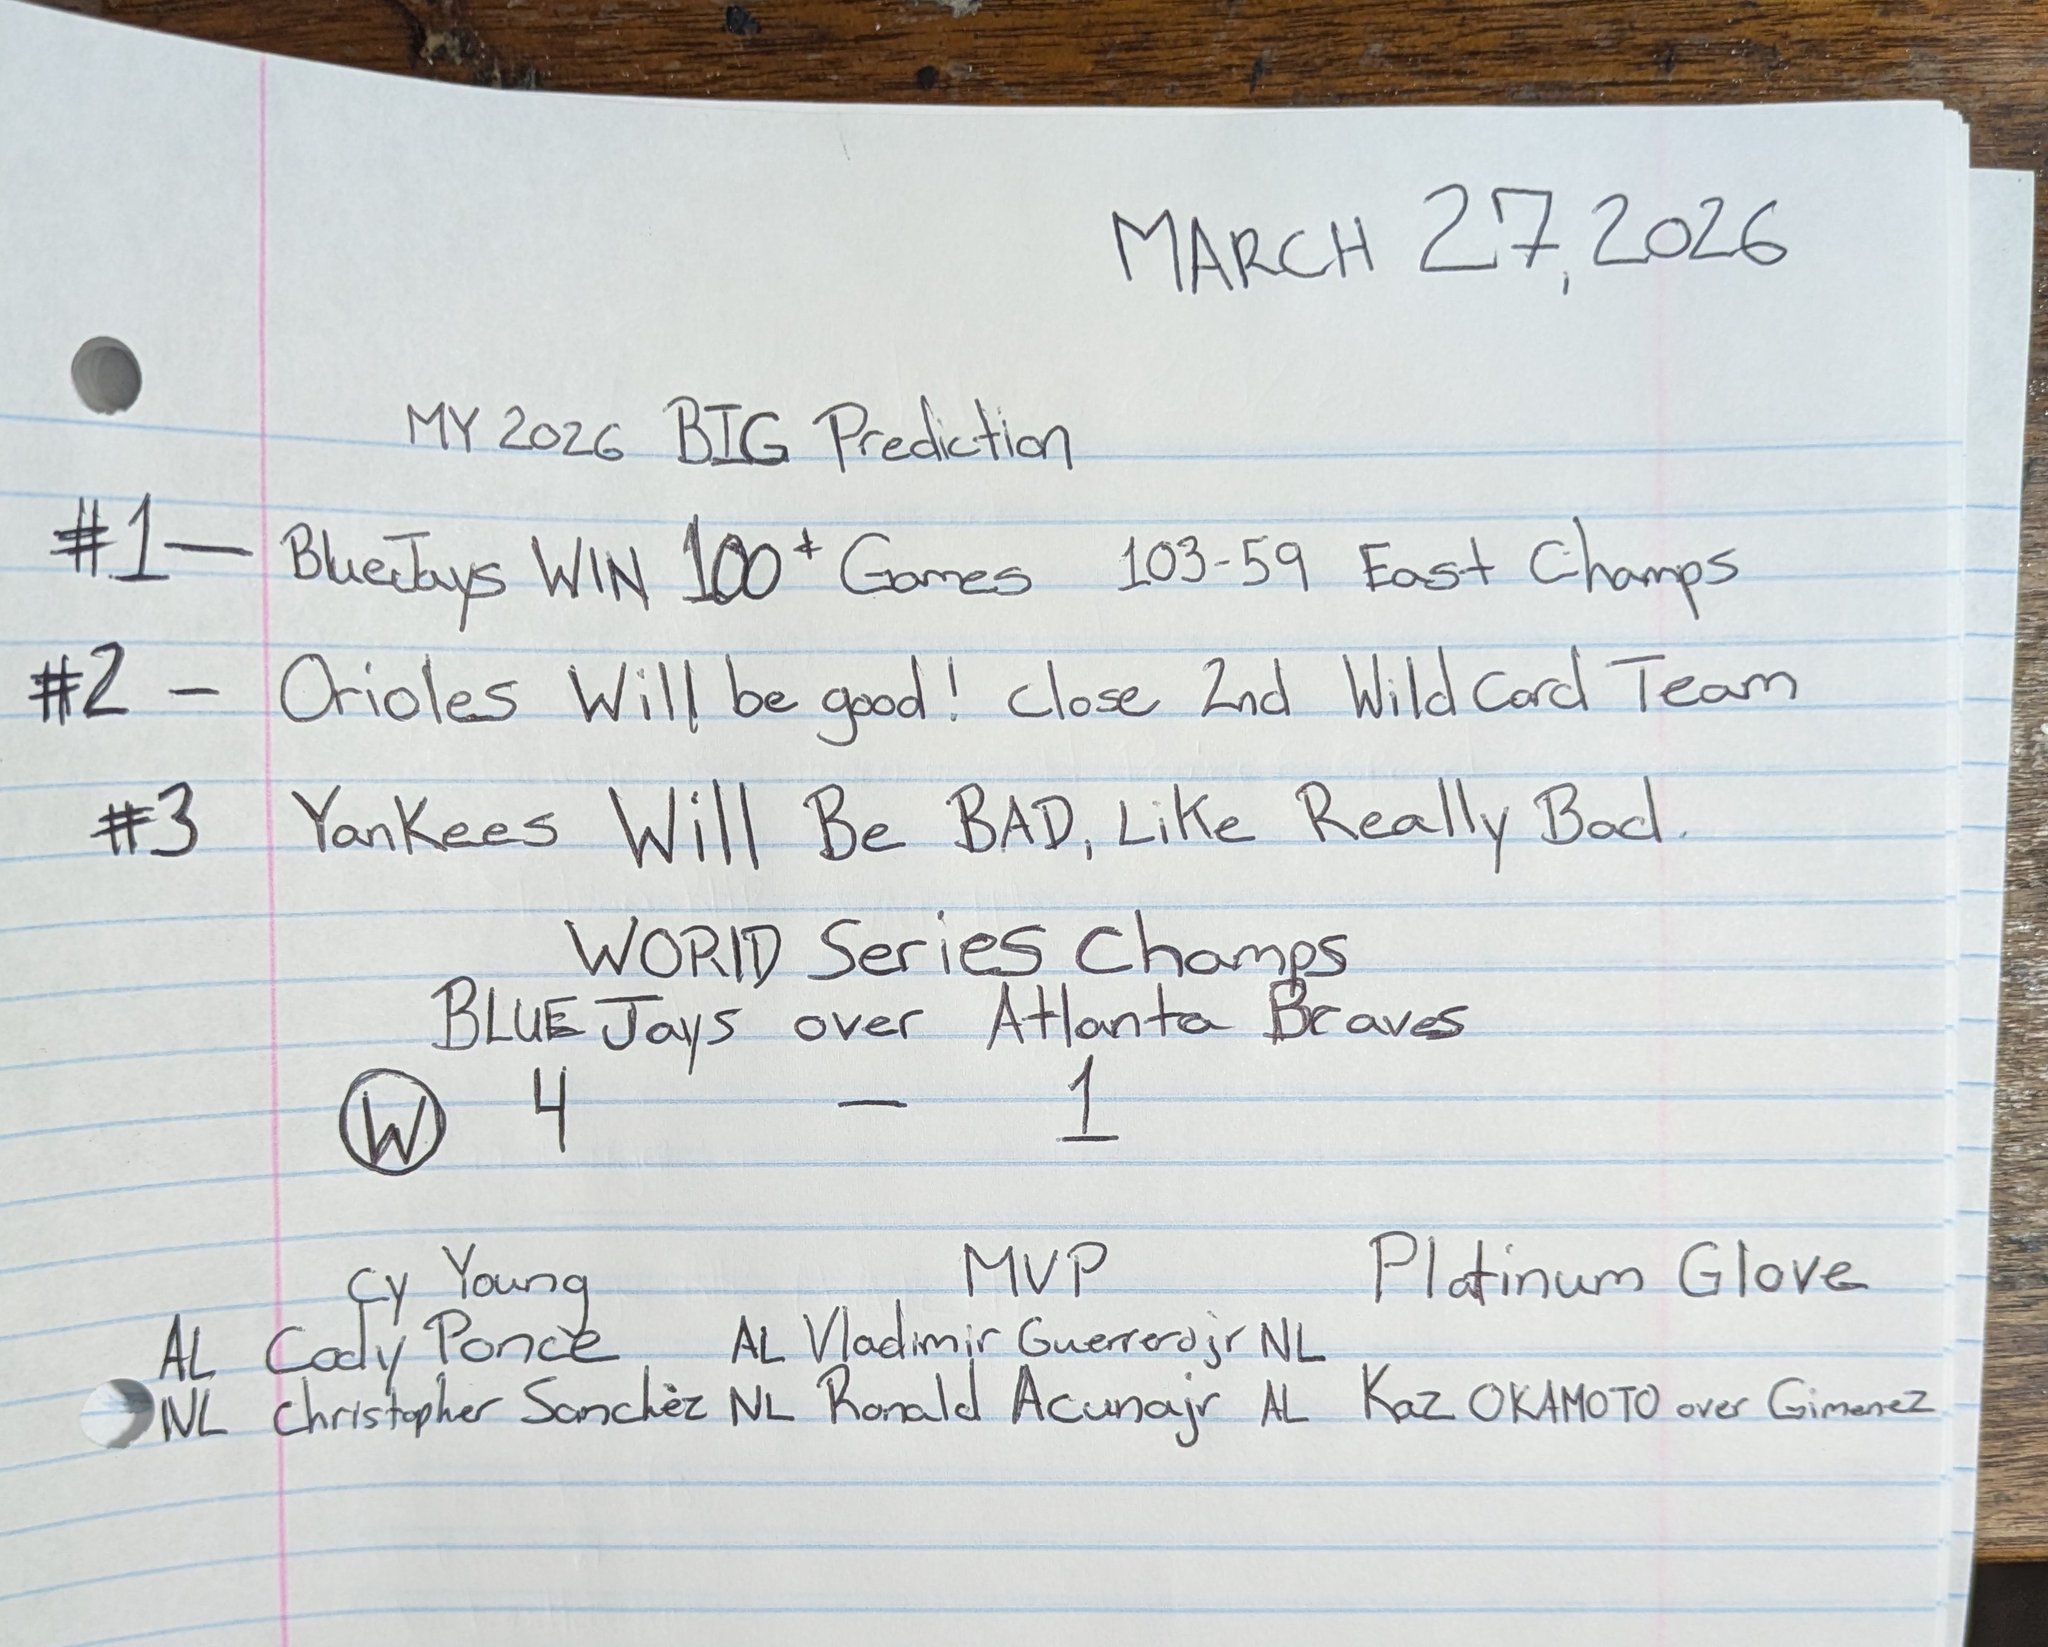 MARCH 27, 2026
MY 2026 BIG Prediction
#1 — BlueJays WIN 100+ Games 103-59 East Champs
#2 - Orioles Will be good! Close 2nd Wild Card Team
#3 Yankees Will Be BAD, Like Really Bad.
WORlD Series Champs
BLUE Jays over Atlanta Braves
W 4 — 1
Cy Young MVP Platinum Glove
AL Cody Ponce AL Vladimir Guerrerojr NL
NL Christopher Sanchez NL Ronald Acunajr AL Kaz OKAMOTO over Gimenez